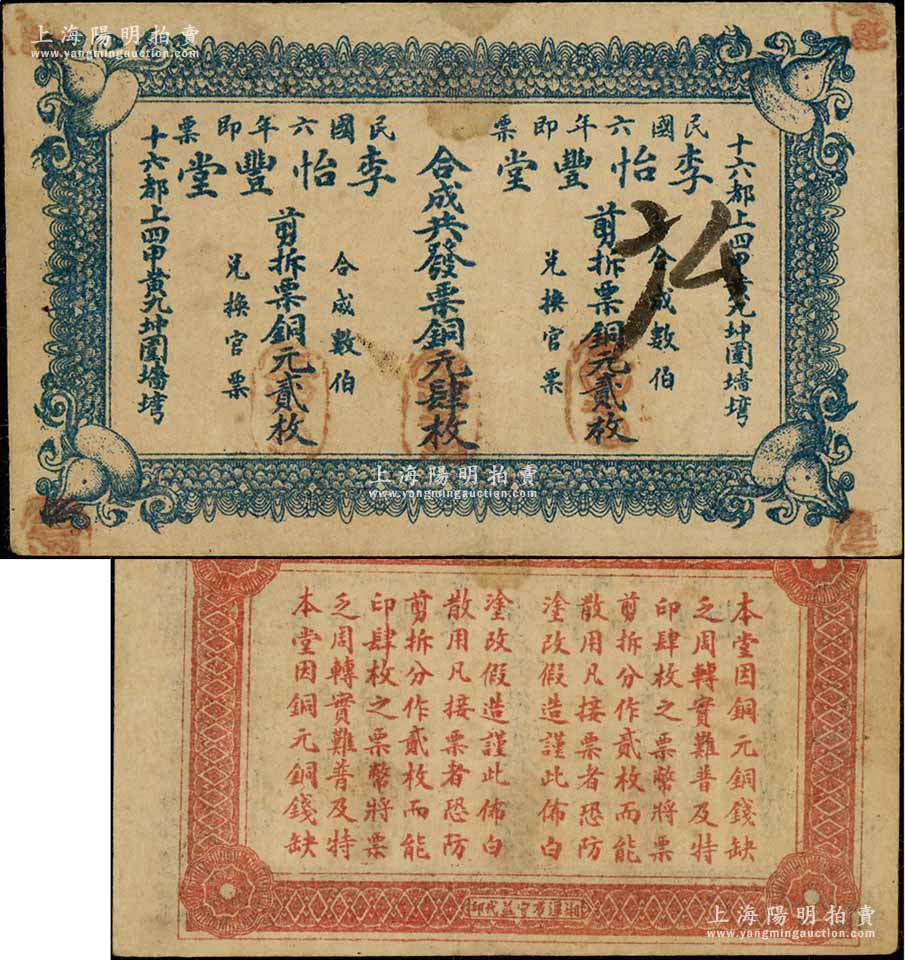 上海陽明拍賣
www.yangmingauction.com
民國六年即票
李怡豐堂
十六都上四甲黄九坤園墻塆
合成數伯
剪拆票銅元貳枚
兑换官票
合成共發票銅元肆枚
民國六年即票
李怡豐堂
合成數伯
剪拆票銅元貳枚
兑换官票
十六都上四甲黄九坤園墻塆
上海陽明拍賣
www.yangmingauction.com
本堂因銅元銅錢缺
乏周轉實難普及特
印肆枚之票幣將票
剪拆分作貳枚而能
散用凡接票者恐防
塗改假造謹此佈白
塗改假造謹此佈白
散用凡接票者恐防
剪拆分作貳枚而能
印肆枚之票幣將票
乏周轉實難普及特
本堂因銅元銅錢缺
上海陽明拍賣
www.yangmingauction.com